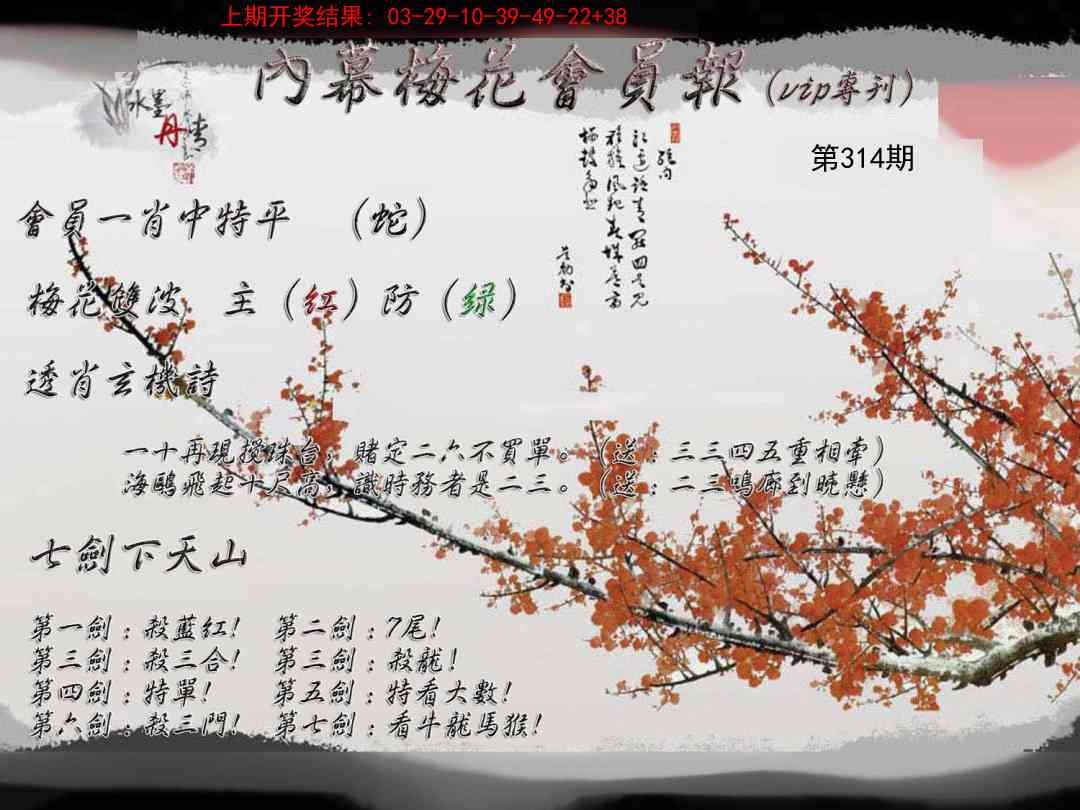 上期开奖结果: 03-29-10-39-49-22+38
內幕梅花會員報(vip專刊)
水墨丹青
第314期
會員一肖中特平 （蛇）
梅花雙波 主（红）防（绿）
透肖玄機詩
一十再現攪珠台，賭定二六不買單。（送：三三四五重相牽）
海鷗飛起十尺高，識時務者是二三。（送：二三鳴廊到晓懸）
七劍下天山
第一劍：殺藍紅！ 第二劍：7尾！
第三劍：殺三合！ 第三劍：殺龍！
第四劍：特單！ 第五劍：特看大數！
第六劍：殺三門！ 第七劍：看牛龍馬猴！